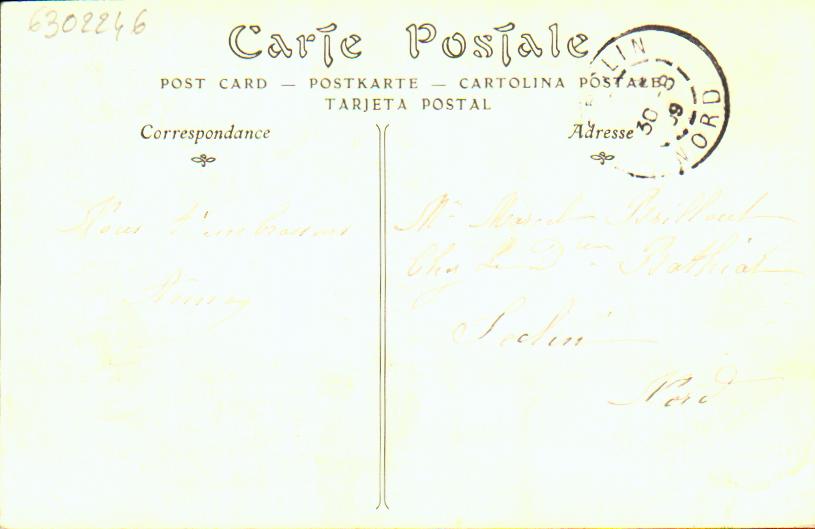 6302246
Carte Postale
POST CARD — POSTKARTE — CARTOLINA POSTALE
TARJETA POSTAL
LIN
30 -8
09
NORD
Correspondance
Adresse
Nous t'embrassons
Mr Marcel Brillant
Chez Le Dr Bathiat
Seclin
Nord